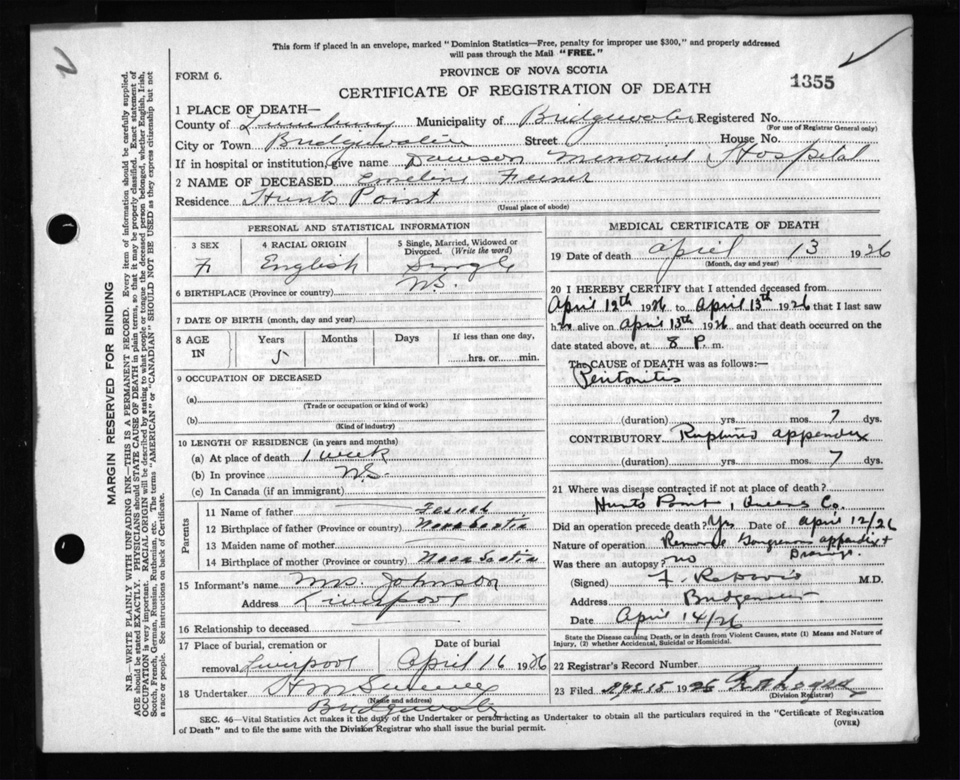 This form if placed in an envelope, marked "Dominion Statistics—Free, penalty for improper use $300," and properly addressed
will pass through the Mail "FREE."
FORM 6.
PROVINCE OF NOVA SCOTIA
CERTIFICATE OF REGISTRATION OF DEATH
1355
1 PLACE OF DEATH—
County of Lunenburg Municipality of Bridgewater Registered No.
(For use of Registrar General only)
City or Town Bridgewater Street House No.
If in hospital or institution, give name Dawson Memorial Hospital
2 NAME OF DECEASED Emeline
Residence Hunts Point
(Usual place of abode)
PERSONAL AND STATISTICAL INFORMATION
3 SEX 4 RACIAL ORIGIN 5 Single, Married, Widowed or Divorced. (Write the word)
F English Single
6 BIRTHPLACE (Province or country) N.S.
7 DATE OF BIRTH (month, day and year)
8 AGE IN Years Months Days If less than one day,
5 hrs. or min.
9 OCCUPATION OF DECEASED
(a)
(Trade or occupation or kind of work)
(b)
(Kind of industry)
10 LENGTH OF RESIDENCE (in years and months)
(a) At place of death 1 week
(b) In province N.S.
(c) In Canada (if an immigrant)
Parents
11 Name of father
12 Birthplace of father (Province or country) Nova Scotia
13 Maiden name of mother
14 Birthplace of mother (Province or country) Nova Scotia
15 Informant's name Mrs. Johnson
Address Liverpool
16 Relationship to deceased
17 Place of burial, cremation or Date of burial
removal Liverpool April 16 1926
18 Undertaker
(Name and address)
Bridgewater
MEDICAL CERTIFICATE OF DEATH
19 Date of death April 13 1926
(Month, day and year)
20 I HEREBY CERTIFY that I attended deceased from
April 12th 1926 to April 13th 1926 that I last saw
her alive on April 13th 1926 and that death occurred on the
date stated above, at 8 P. m.
The CAUSE of DEATH was as follows:—
Peritonitis
(duration) yrs. mos. 7 dys.
CONTRIBUTORY Ruptured appendix
(duration) yrs. mos. 7 dys.
21 Where was disease contracted if not at place of death?
Hunts Point, Queens Co.
Did an operation precede death? Yes Date of April 12/26
Nature of operation Remove Gangrenous appendix +
Drainage.
Was there an autopsy? no
(Signed) M.D.
Address Bridgewater
Date April 14/26
State the Disease causing Death, or in death from Violent Causes, state (1) Means and Nature of
Injury, (2) whether Accidental, Suicidal or Homicidal.
22 Registrar's Record Number
23 Filed Apl 15 1926
(Division Registrar)
SEC. 46—Vital Statistics Act makes it the duty of the Undertaker or person acting as Undertaker to obtain all the particulars required in the "Certificate of Registration
of Death" and to file the same with the Division Registrar who shall issue the burial permit.
(OVER)
MARGIN RESERVED FOR BINDING
N.B.—WRITE PLAINLY WITH UNFADING INK—THIS IS A PERMANENT RECORD. Every item of information should be carefully supplied.
AGE should be stated EXACTLY. PHYSICIANS should STATE CAUSE OF DEATH in plain terms, so that it may be properly classified. Exact statement of
OCCUPATION is very important. RACIAL ORIGIN will be described by stating to what people or tongue the deceased person belonged, whether English, Irish,
Scotch, French, German, Russian, Ruthenian, etc. The terms "AMERICAN" or "CANADIAN" SHOULD NOT BE USED as they express citizenship but not
a race or people. See instructions on back of Certificate.